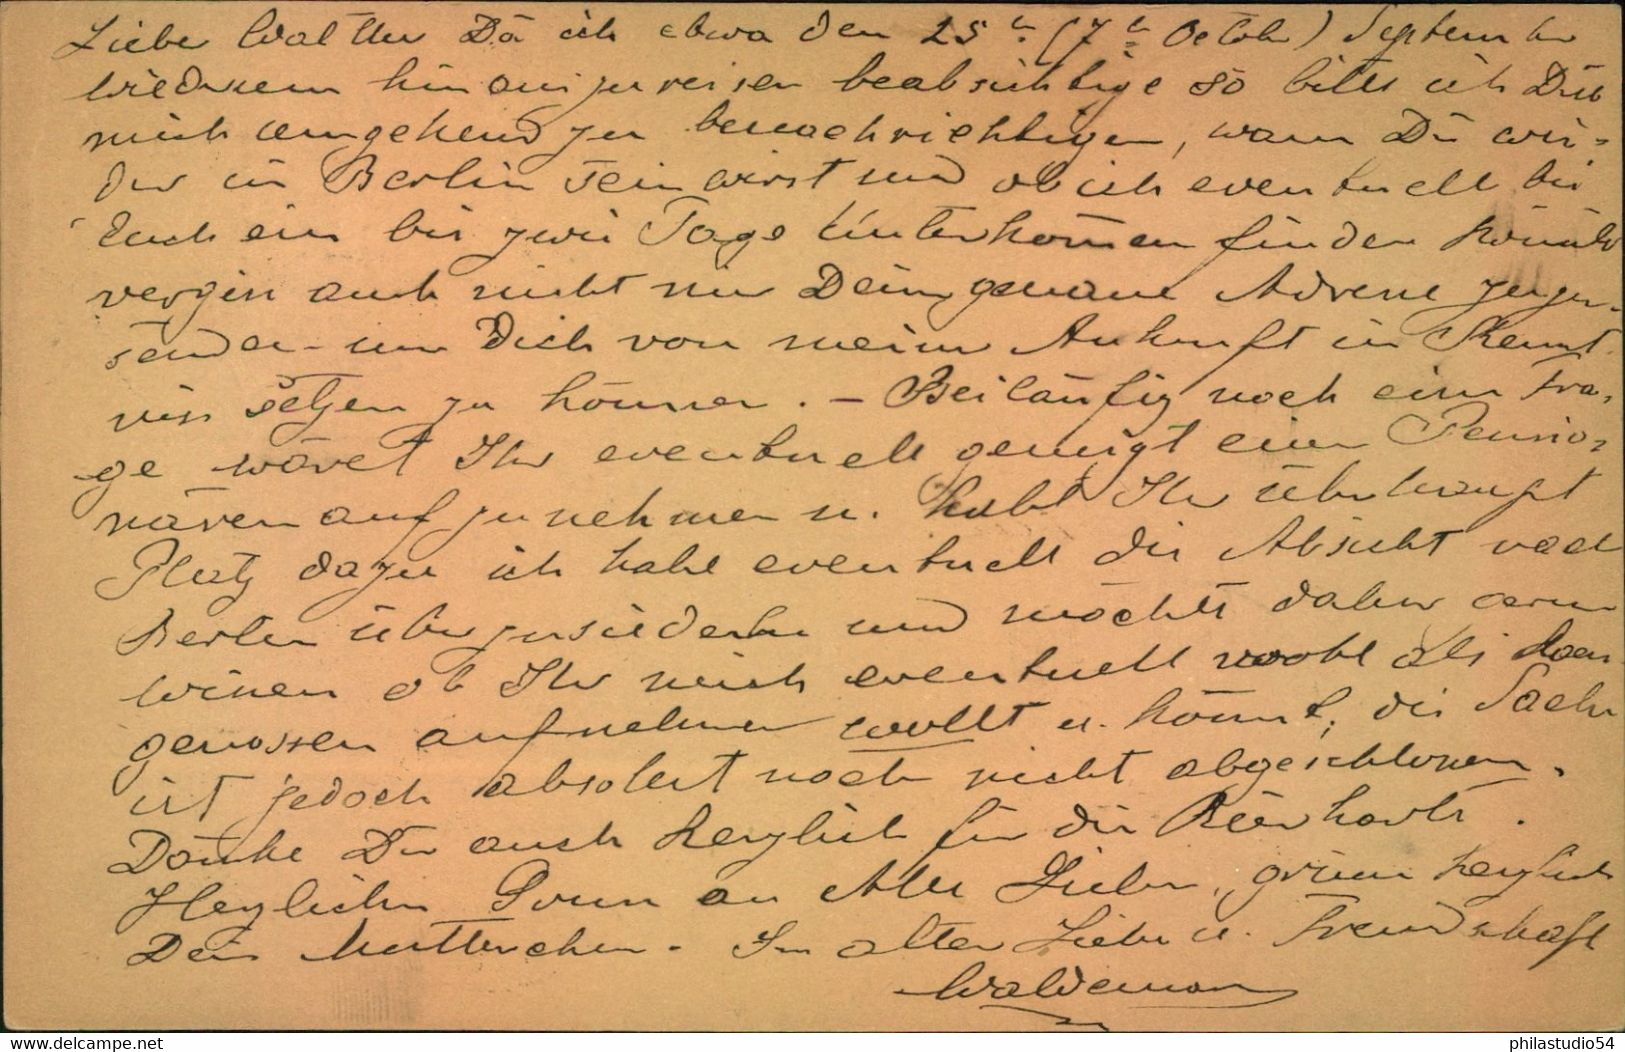 Lieber Walther Da ich etwa den 25t. (7t October) September
wiederum hinauszureisen beabsichtige so bitte ich Dich
mich umgehend zu benachrichtigen, wann Du wie-
der in Berlin sein wirst und ob ich eventuell bei
Euch ein bis zwei Tage Unterkommen finden könnte
vergiss auch nicht mir Deine genaue Adresse zuzu-
senden um Dich von meiner Ankunft in Kennt-
niss setzen zu können. – Beiläufig noch eine Fra-
ge wäret Ihr eventuell geneigt einen Pensio-
nären aufzunehmen u. habt Ihr überhaupt
Platz dazu ich habe eventuell die Absicht nach
Berlin überzusiedeln und möchte daher gerne
wissen ob Ihr mich eventuell wohl als Haus-
genossen aufnehmen wollt u. könnt, die Sache
ist jedoch absolut noch nicht abgeschlossen.
Danke Dir auch herzlich für die
Herzlichen Gruss an Alle Lieben, grüsse herzlich
Dein Mütterchen. In alter Liebe u. Freundschaft
Woldemar
delcampe.net
philastudio54